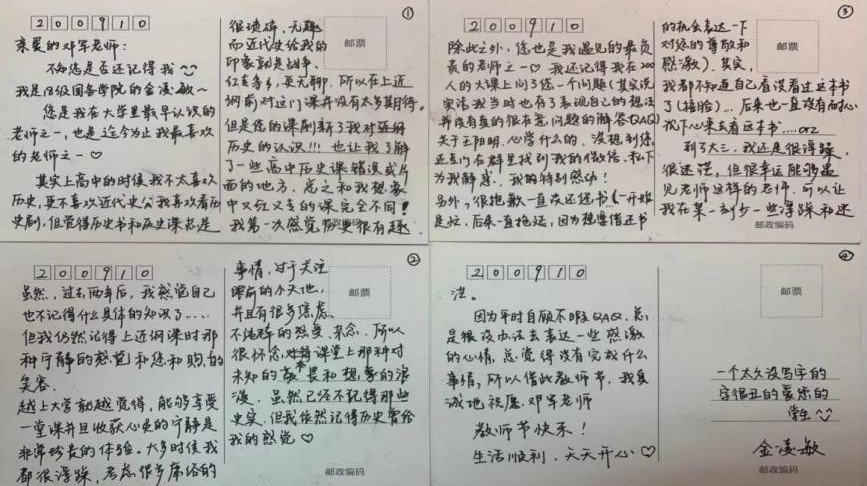 200910
①
亲爱的邓军老师：
不知您是否还记得我
我是18级国务学院的金凌敏～
您是我在大学里最早认识的
老师之一，也是迄今为止我最喜欢
的老师之一♡
其实上高中的时候我不太喜欢
历史，更不喜欢近代史（我喜欢看历
史剧，但觉得历史书和历史课总是
邮票
很琐碎，无趣
而近代史给我的
印象就是战争、
红色等等，更无聊，所以在上近
纲前对这门课并没有太多期待。
但是您的课刷新了我对近纲
历史的认识!!! 也让我了解
了一些高中历史课错误或片
面的地方。总之和我想象
中又红又专的课完全不同！
我第一次感觉历史很有趣
邮政编码
200910
②
虽然，过去两年后，我感觉自己
也不记得什么具体的知识了.....
但我仍然记得上近纲课时那
种宁静的感觉和您和煦的
笑容.
越上大学就越觉得，能够享受
一堂课并且收获心灵的宁静是
非常珍贵的体验。大多时候我
都很浮躁，考虑很多庸俗的
邮票
事情，过于关注
眼前的小天地，
并且有很多焦虑、
不纯粹的感受、杂念。所以
很怀念课堂上那种对
未知的敬畏和想象的浪
漫。虽然已经不记得那些
史实，但我依然记得历史曾给
我的感觉♡
邮政编码
200910
③
除此之外，您也是我遇见的最负
责的老师之一♡ 我还记得我在200
人的大课上问了您一个问题（其实说
实话我当时也存了表现自己的想法
并没有真的很在意问题的解答QAQ）
关于王阳明、心学什么的，没想到您
还专门在群里找到我的微信，私下
为我解惑，我的特别感动！
另外，很抱歉一直没还您书（一开始
是忙，后来一直拖延，因为想凭借还书
邮票
的机会表达一下
对您的尊敬和
感激）。其实，
我都不知道自己有没看过这本书
了（捂脸）... 后来也一直没有耐心
沉下心来去看这本书....orz
到了大三，我还是很浮躁、
很迷茫，但很幸运能够遇
见老师这样的老师，可以让
我在某一刻少一些浮躁和迷
邮政编码
200910
④
茫。
因为平时自顾不暇QAQ，总
是很没办法去表达一些感激
的心情，总觉得没有完成什么
事情，所以借此教师节，我真
诚地祝愿邓军老师
教师节快乐！
生活顺利，天天开心♡
邮票
一个太久没写字的
字很丑的爱您的
学生
金凌敏
邮政编码